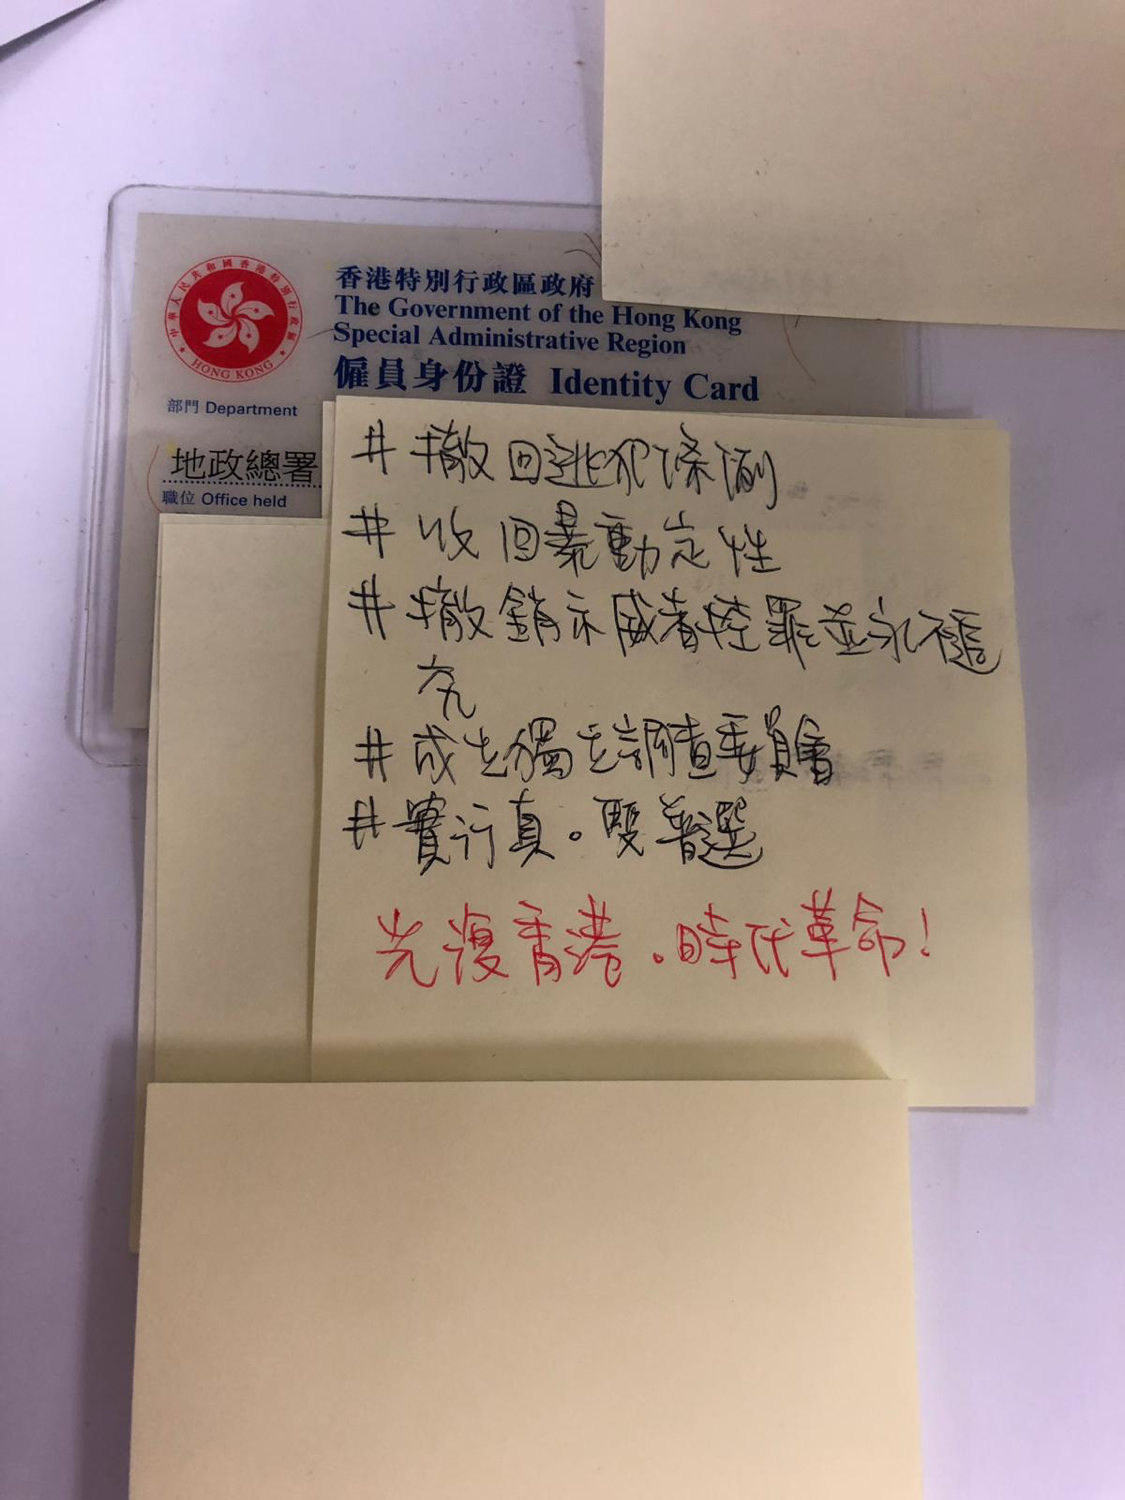 中華人民共和國香港特別行政區
HONG KONG
香港特別行政區政府
The Government of the Hong Kong
Special Administrative Region
僱員身份證 Identity Card
部門 Department
地政總署
職位 Office held
# 撤回逃犯條例
# 收回暴動定性
# 撤銷示威者控罪並永不追
究
# 成立獨立調查委員會
# 實行真。雙普選
光復香港.時代革命!